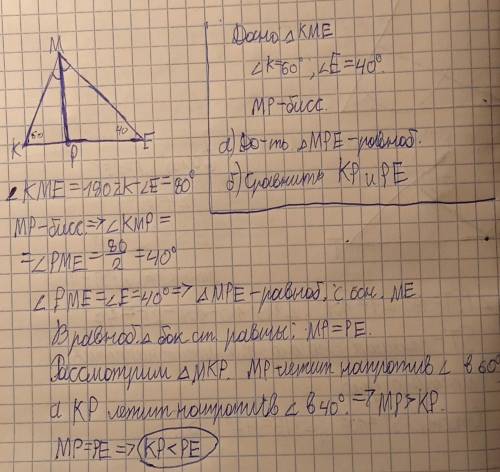 M
K
60
P
40
E
Дано △KME
∠K=60°, ∠E=40°.
MP-бисс.
а) До-ть △MPE-равноб.
б) Сравнить KP и PE
∠KME=180-∠K-∠E=80°
MP-бисс.=>∠KMP=
=∠PME=80/2=40°
∠PME=∠E=40°=>△MPE-равноб. с осн. ME
В равноб.△ бок ст. равны: MP=PE.
Рассмотрим △MKP. MP-лежит напротив ∠ в 60°
а KP лежит напротив ∠ в 40°.=>MP>KP.
MP=PE=>KP<PE